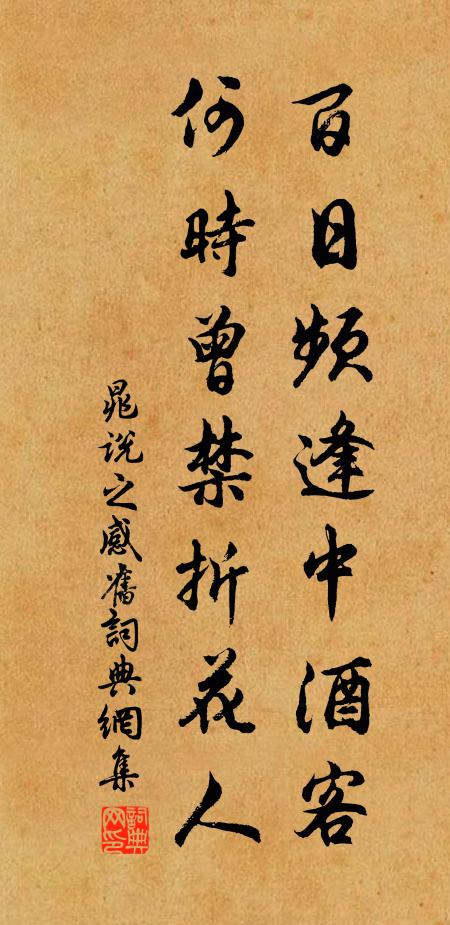 百日頻逢中酒客
何時曾禁折花人
晁說之感舊詞典網集
詞典網印